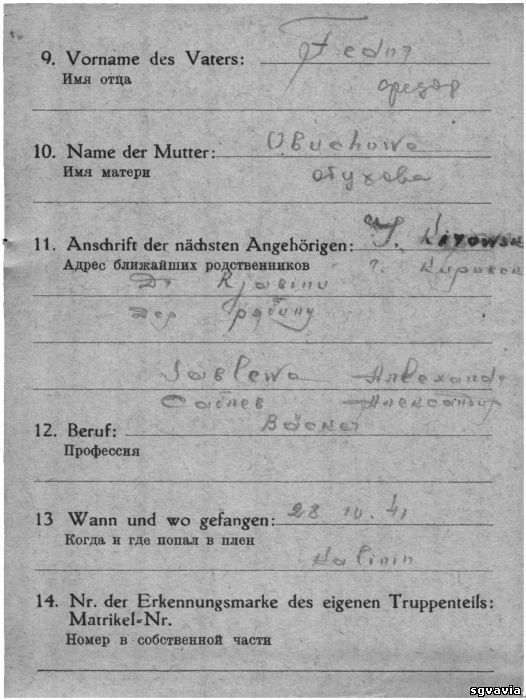 9. Vorname des Vaters: Fedor
Имя отца
федор
10. Name der Mutter: Obuchowa
Имя матери обухова
11. Anschrift der nächsten Angehörigen: Kirowsk
Адрес ближайших родственников г. Кировск
Rjabinu
Дер рябину
Sablewa Alexand
Саблев Александр
12. Beruf: Bäcker
Профессия
13 Wann und wo gefangen: 28 10. 41
Когда и где попал в плен
Kalinin
14. Nr. der Erkennungsmarke des eigenen Truppenteils:
Matrikel-Nr.
Номер в собственной части
sgvavia